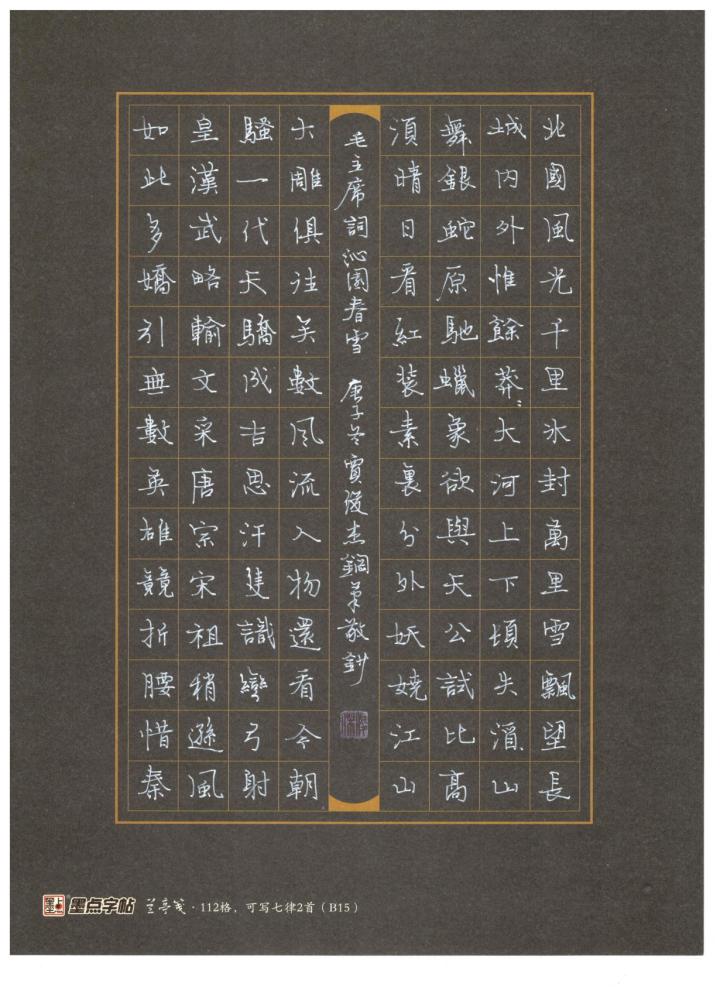 北國風光千里冰封萬里雪飄望長
城内外惟餘莽〻大河上下頓失滔〻山
舞銀蛇原馳蠟象欲與天公試比高
須晴日看紅裝素裹分外妖嬈江山
如此多嬌引無數英雄競折腰惜秦
皇漢武略輸文采唐宗宋祖稍遜風
騷一代天驕成吉思汗隻識彎弓射
大雕俱往矣數风流人物還看今朝
毛主席詞沁園春雪 庚子冬賈俊杰鋼筆敬鈔
墨点字帖 兰亭笺·112格，可写七律2首（B15）